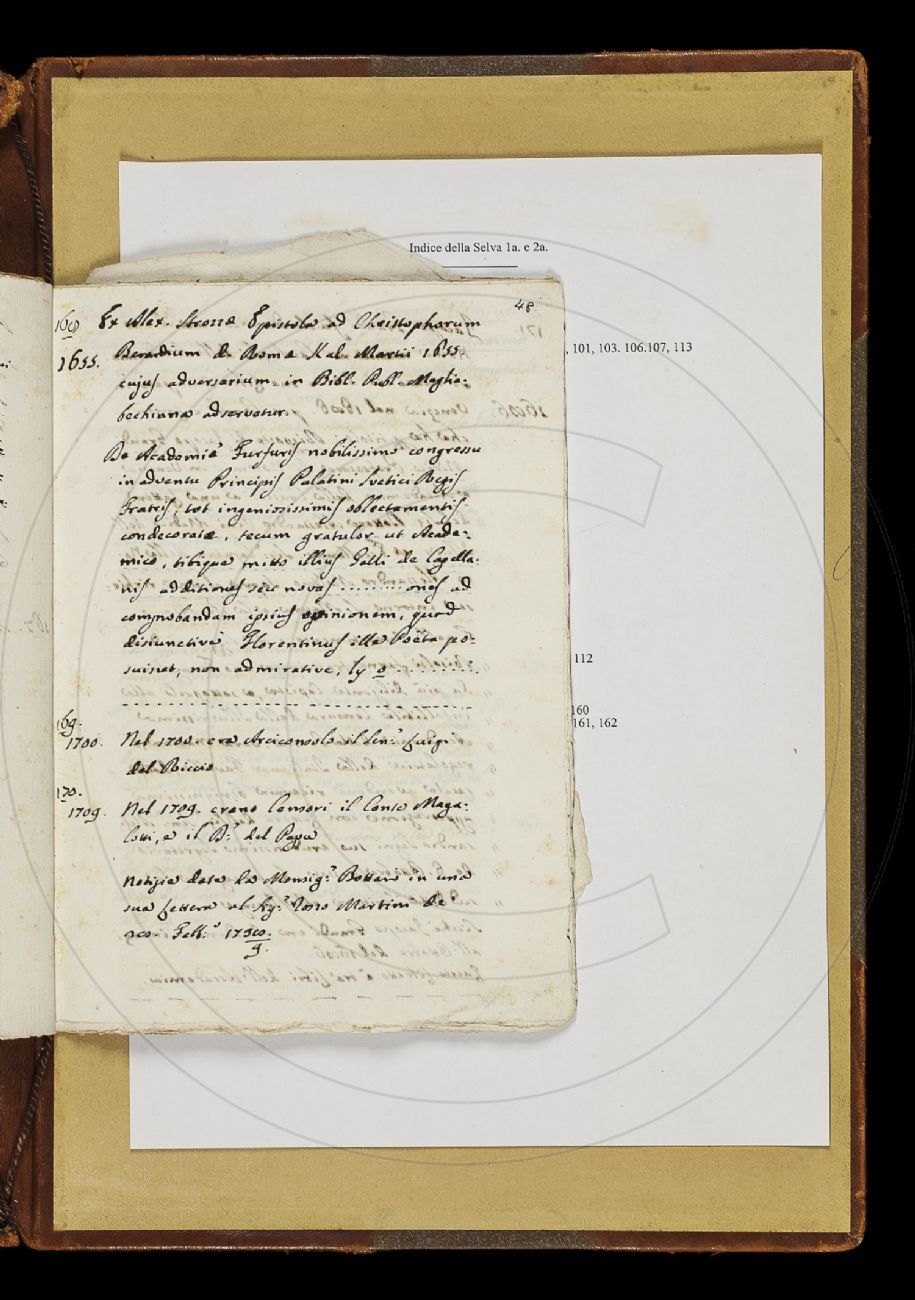 Indice della Selva 1a. e 2a.
, 101, 103. 106.107, 113
112
160
161, 162
48
Ex Alex. Strozza Epistola ad Christophorum
1655. Berardium de Roma Kal. Martii 1655.
cujus adversarium in Bibl. Publ. Maglia:
bechiana adservatur.
De Academiæ Furfuris nobilissimo congressu
in adventu Principis Palatini Svetici Regis
Fratris, tot ingeniosissimis oblectamentis
condecoratæ, tecum gratulor ut Acade:
mico, tibique mitto illius Galli de Capella:
nis additiones seu novas ......... ones ad
comprobandam ipsius opinionem, quod
disiunctivè Florentinus ille Poëta po:
suisset, non admirative, ly o ..........
169.
1700. Nel 1700. era Arciconsolo il Sen.r Luigi
del Riccio
170.
1709. Nel 1709. erano Censori il Conte Maga:
lotti, e il D.r del Papa
Notizia data da Monsig.r Bottari in una
sua lettera al Sig.r Rosso Martini de
20. Febb.o